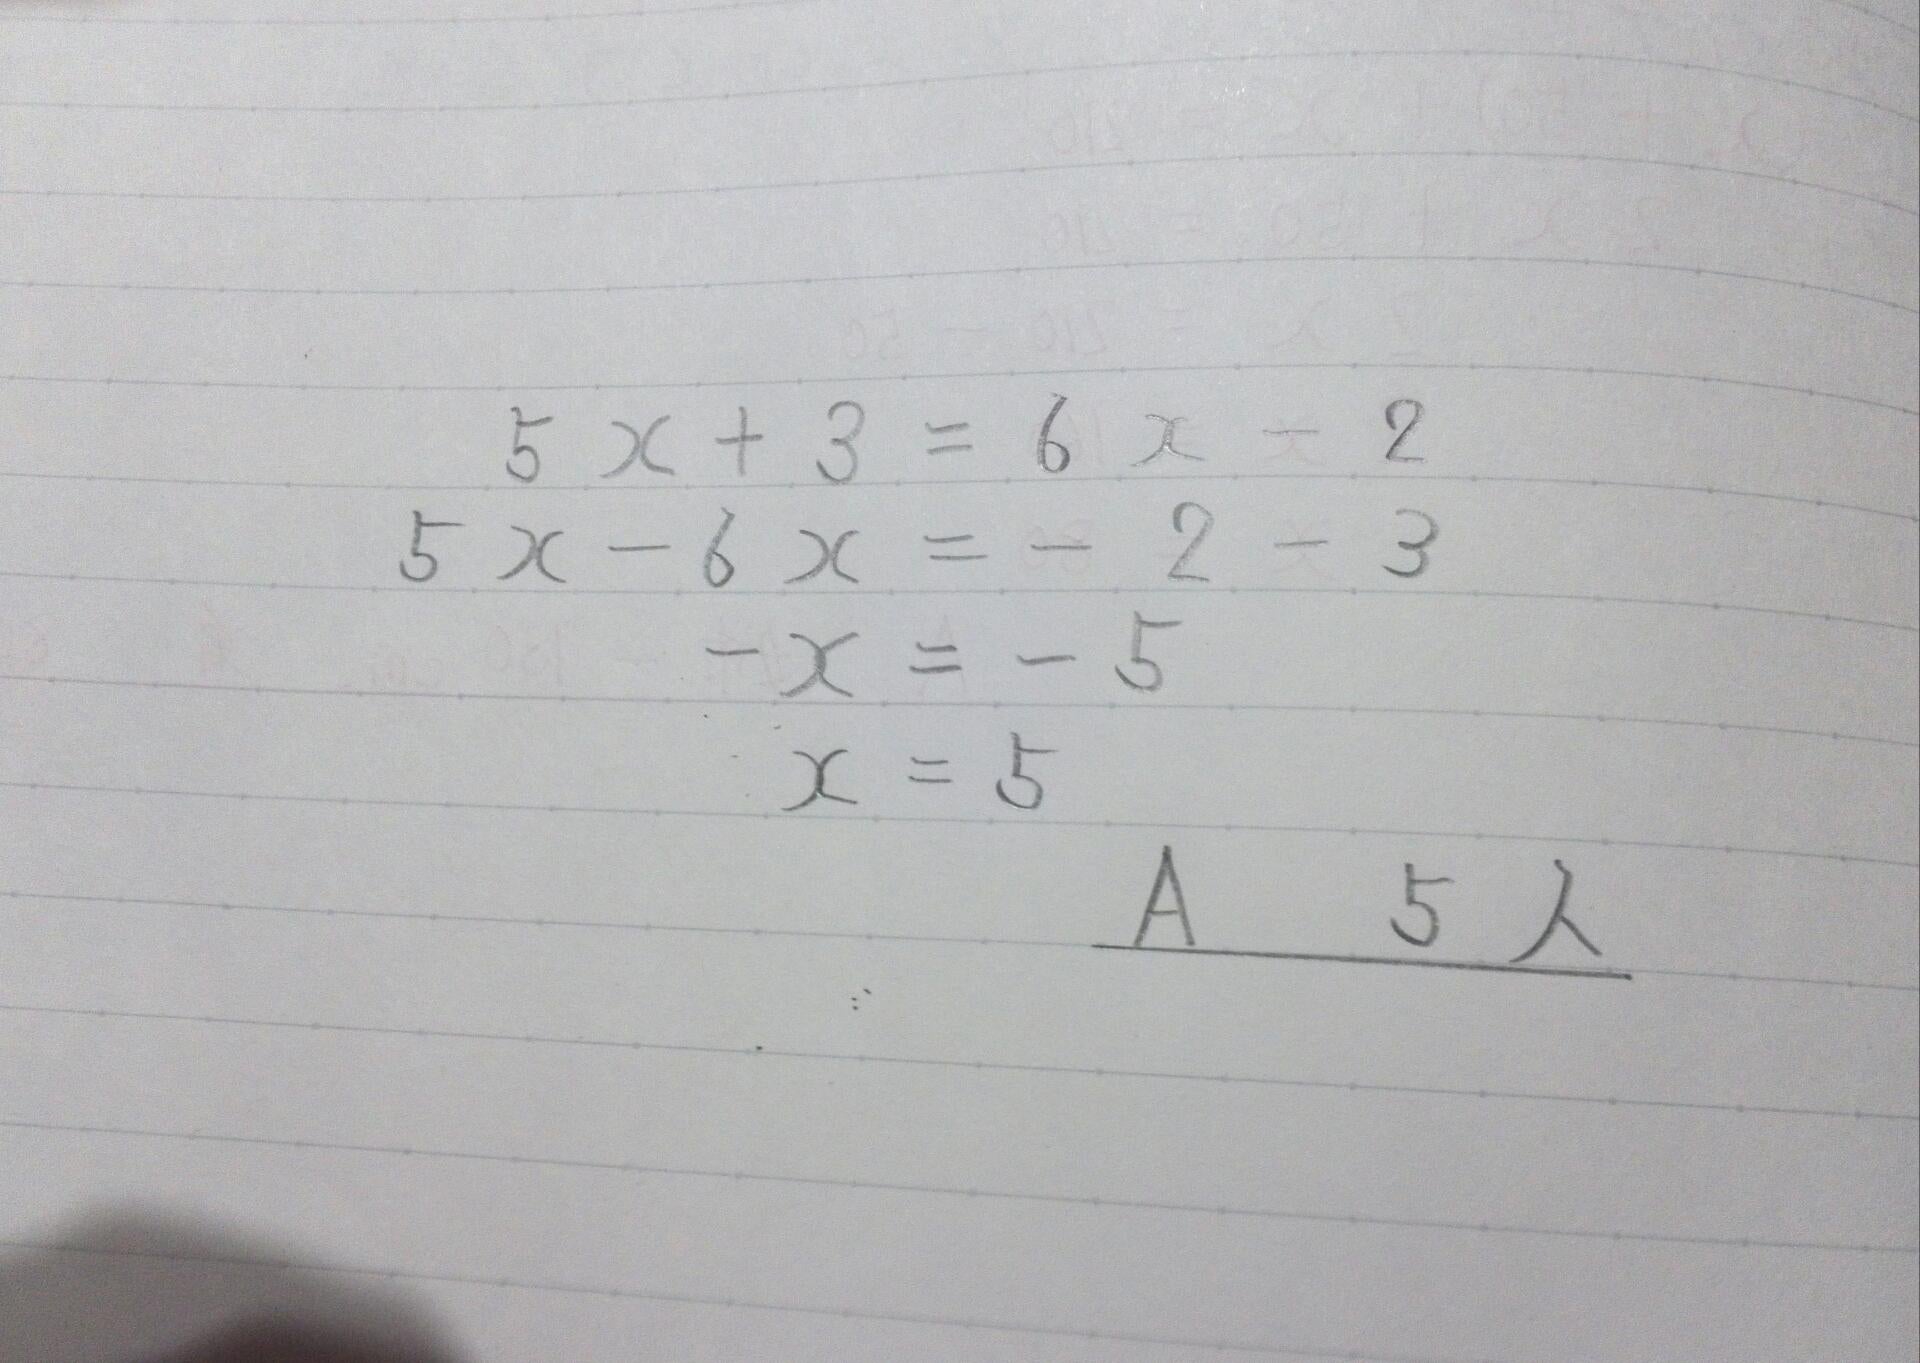 5x+3=6x-2
5x-6x=-2-3
-x=-5
x=5
A 5人